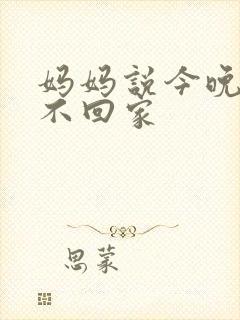 妈妈説今晚
不回家
思蒙